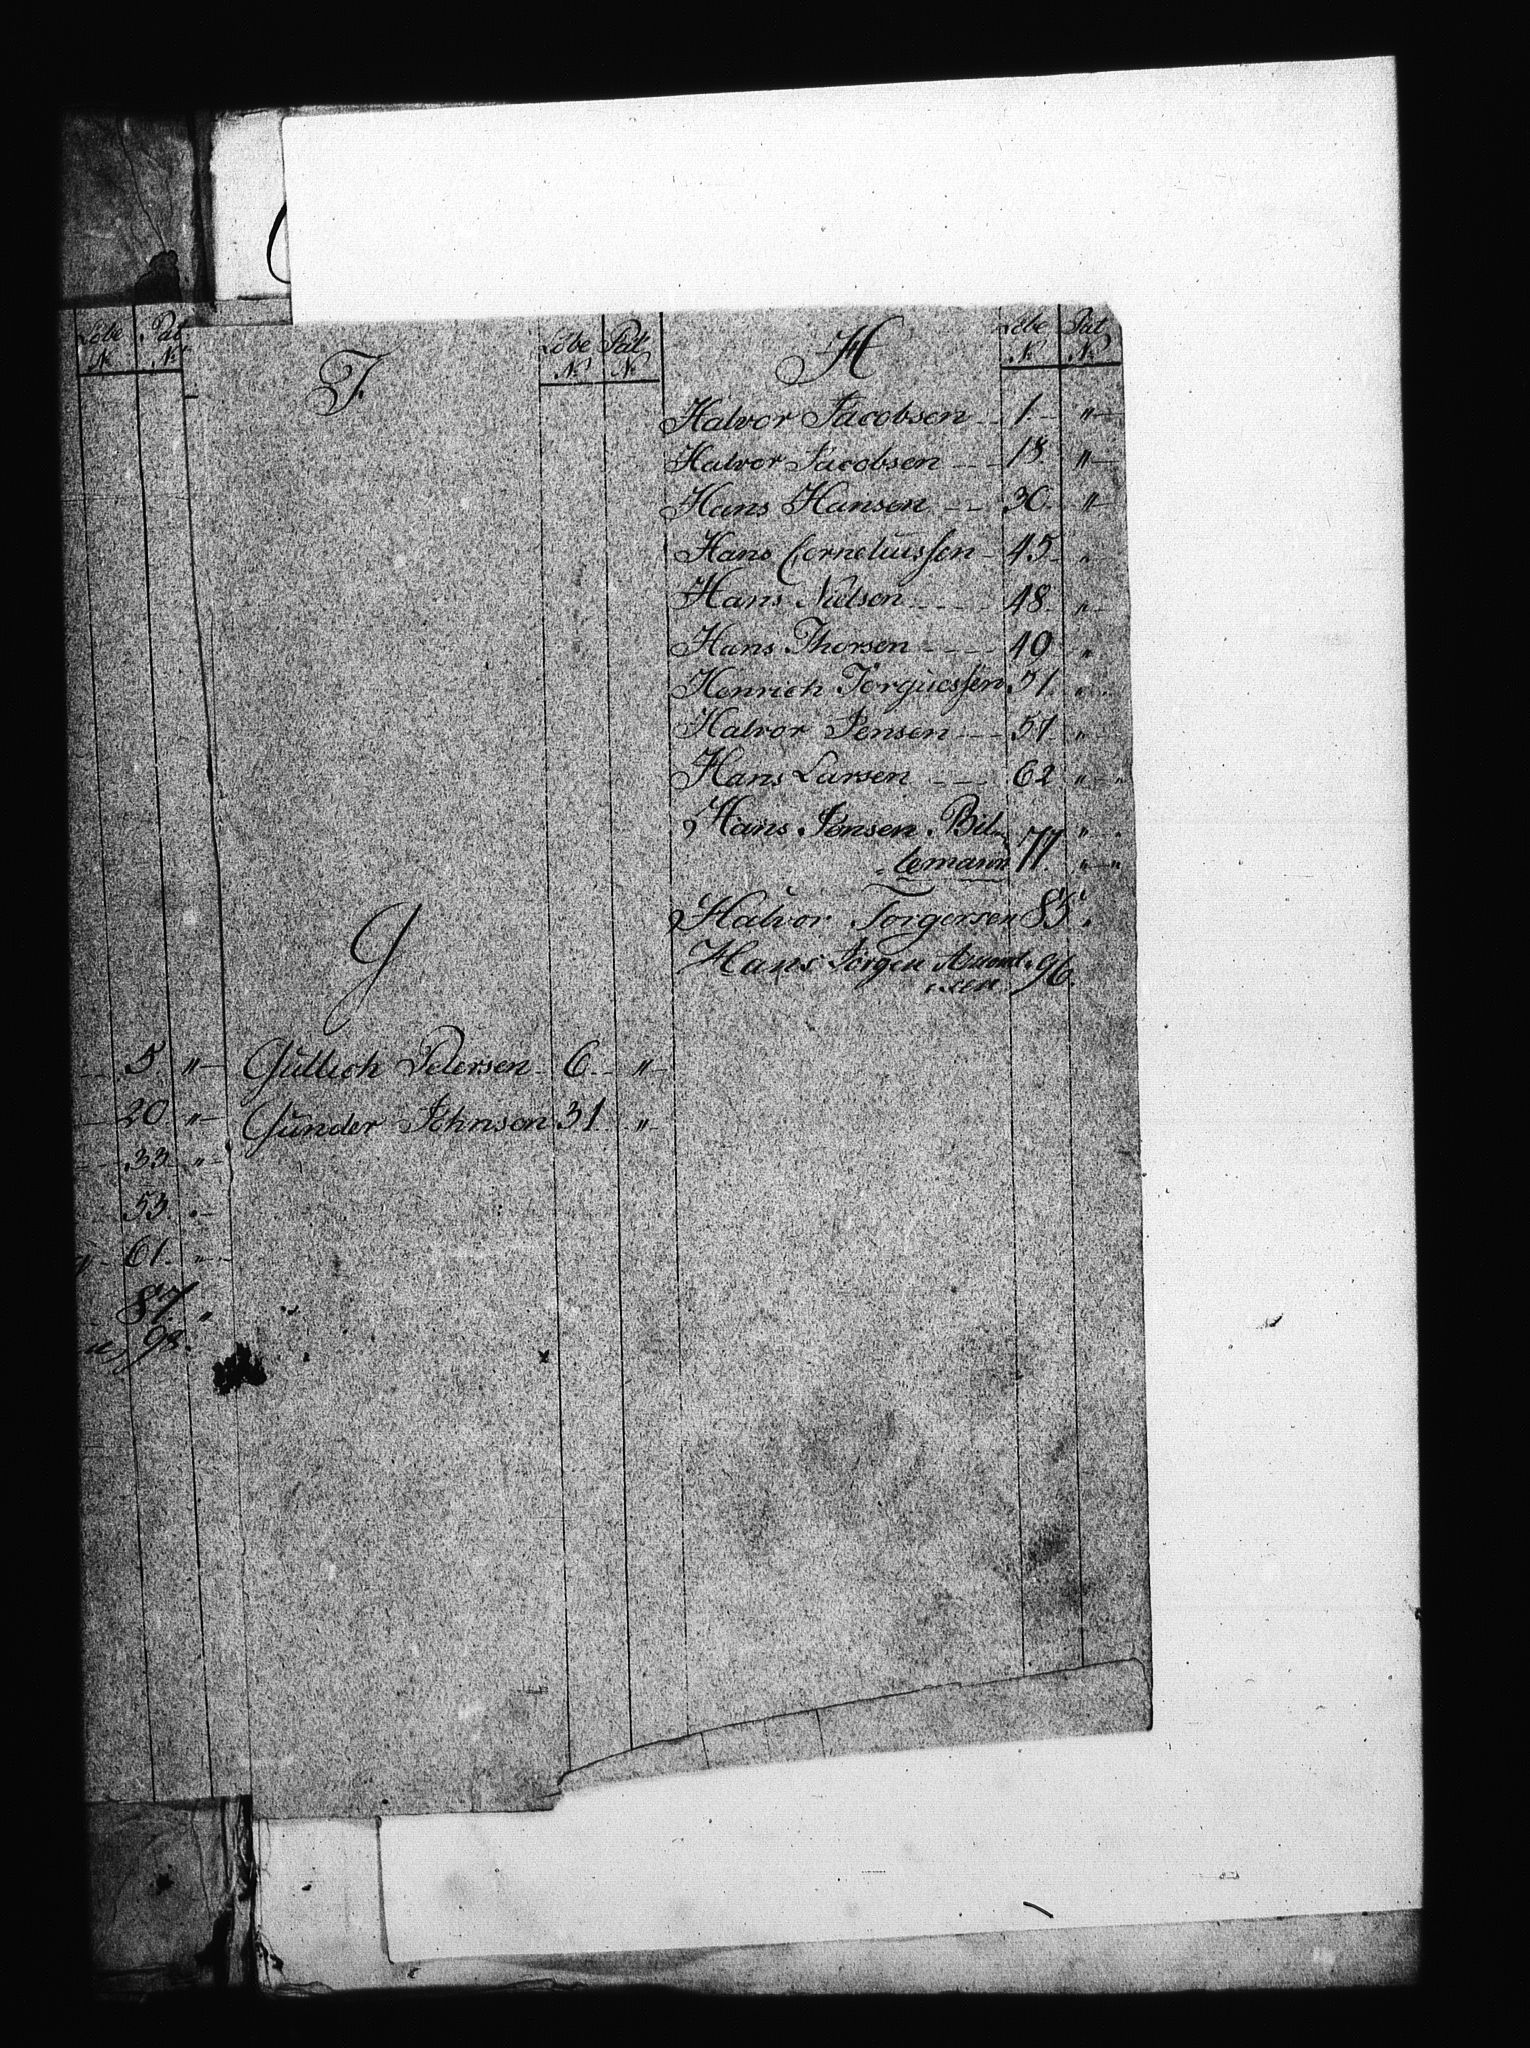 Löbe Pat
No No
5. "
20 "
33. "
53.
61.
87. "
98.
F.
Löbe Pat
No No
G
Gullich Pedersen 6. "
Gunder Johnsen 31 "
H
Löbe Pat
No No
Halvor Jacobsen 1 "
Halvor Jacobsen 18. "
Hans Hansen 30. "
Hans Corneliussen 45. "
Hans Nielsen 48. "
Hans Thorsen 40 "
Henrich Torguessen 51. "
Halvor Jensen 57 "
Hans Larsen 62 "
Hans Jensen Bil- "
lemann 77. "
Halvor Torgersen 85. "
Hans Jörgen 96.
sen